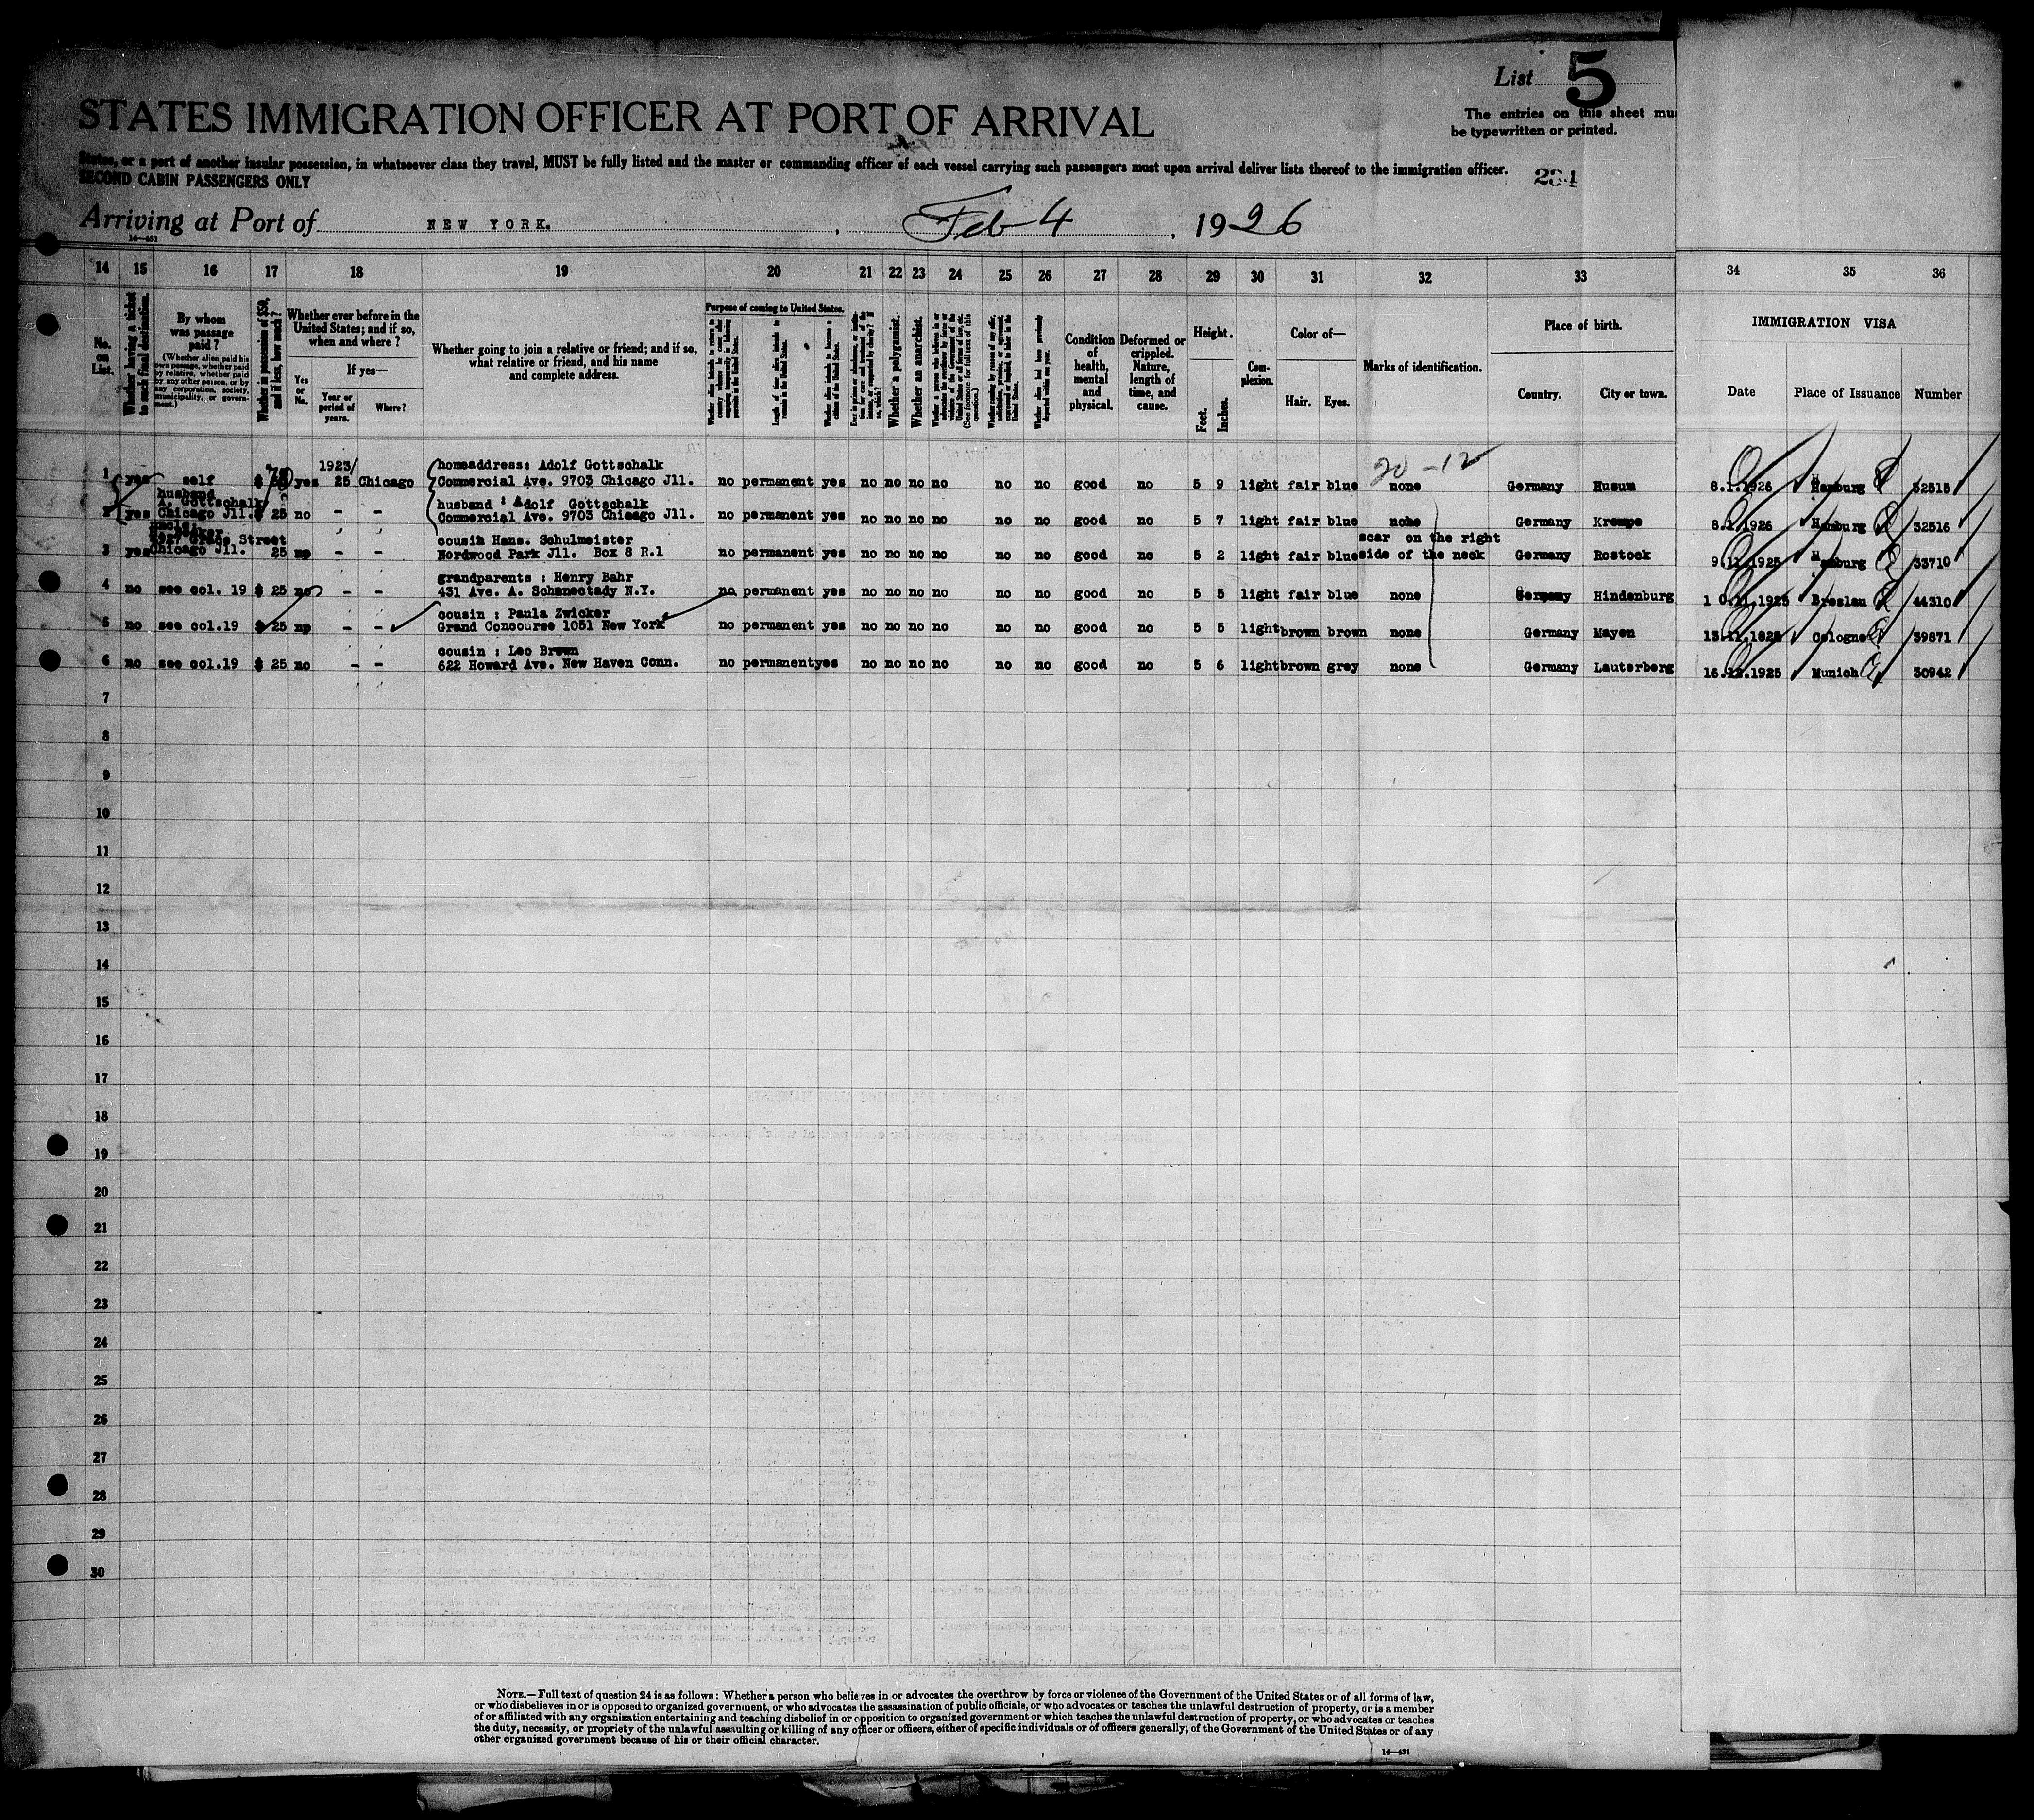 List 5
The entries on this sheet mu
be typewritten or printed.
STATES IMMIGRATION OFFICER AT PORT OF ARRIVAL
States, or a port of another insular possession, in whatsoever class they travel, MUST be fully listed and the master or commanding officer of each vessel carrying such passengers must upon arrival deliver lists thereof to the immigration officer.
SECOND CABIN PASSENGERS ONLY
234
Arriving at Port of NEW YORK. , Feb 4 , 1926
16—431
14 15 16 17 18 19 20 21 22 23 24 25 26 27 28 29 30 31 32 33 34 35 36
No. on List.
Whether having a ticket to such final destination.
By whom was passage paid?
(Whether alien paid his own passage, whether paid by relative, whether paid by any other person, or by any corporation, society, municipality, or government.)
Whether in possession of $50, and if less, how much?
Whether ever before in the United States; and if so, when and where?
Yes or No.
If yes—
Year or period of years.
Where?
Whether going to join a relative or friend; and if so, what relative or friend, and his name and complete address.
Purpose of coming to United States.
Length of time alien intends to remain in the United States.
Whether alien intends to become a citizen of the United States.
Whether a polygamist.
Whether an anarchist.
Condition of health, mental and physical.
Deformed or crippled. Nature, length of time, and cause.
Height.
Feet. Inches.
Complexion.
Color of—
Hair. Eyes.
Marks of identification.
Place of birth.
Country. City or town.
IMMIGRATION VISA
Date Place of Issuance Number
20-12
1923/ homeaddress: Adolf Gottschalk
1 yes self $ yes 25 Chicago Commercial Ave. 9703 Chicago Jll. no permanent yes no no no no no no good no 5 9 light fair blue none Germany Husum 8.1.1926 Hamburg 32515
husband
A. Gottschalk husband : Adolf Gottschalk
2 yes Chicago Jll. $ 25 no - - Commercial Ave. 9703 Chicago Jll. no permanent yes no no no no no no good no 5 7 light fair blue none Germany Krempe 8.1.1926 Hamburg 32516
uncle,
Street cousin Hans. Schulmeister scar on the right
3 yes Chicago Jll. 25 no - - Nordwood Park Jll. Box 8 R.1 no permanent yes no no no no no no good no 5 2 light fair blue side of the neck Germany Rostock 9.11.1925 Hamburg 33710
grandparents : Henry Bahr
4 no see col. 19 $ 25 no - - 431 Ave. A. Schenectady N.Y. no permanent yes no no no no no no good no 5 5 light fair blue none Germany Hindenburg 1 0.11.1925 Breslau 44310
cousin : Paula Zwicker
5 no see col.19 $ 25 no - - Grand Concourse 1051 New York no permanent yes no no no no no no good no 5 5 light brown brown none Germany Mayen 13.11.1925 Cologne 39871
cousin : Leo Brown
6 no see col.19 $ 25 no - - 622 Howard Ave. New Haven Conn. no permanent yes no no no no no no good no 5 6 light brown grey none Germany Lauterberg 16.12.1925 Munich 30942
7
8
9
10
11
12
13
14
15
16
17
18
19
20
21
22
23
24
25
26
27
28
29
30
NOTE.—Full text of question 24 is as follows: Whether a person who believes in or advocates the overthrow by force or violence of the Government of the United States or of all forms of law,
or who disbelieves in or is opposed to organized government, or who advocates the assassination of public officials, or who advocates or teaches the unlawful destruction of property, or is a member
of or affiliated with any organization entertaining and teaching disbelief in or opposition to organized government or which teaches the unlawful destruction of property, or who advocates or teaches
the duty, necessity, or propriety of the unlawful assaulting or killing of any officer or officers, either of specific individuals or of officers generally, of the Government of the United States or of any
other organized government because of his or their official character.
14—431